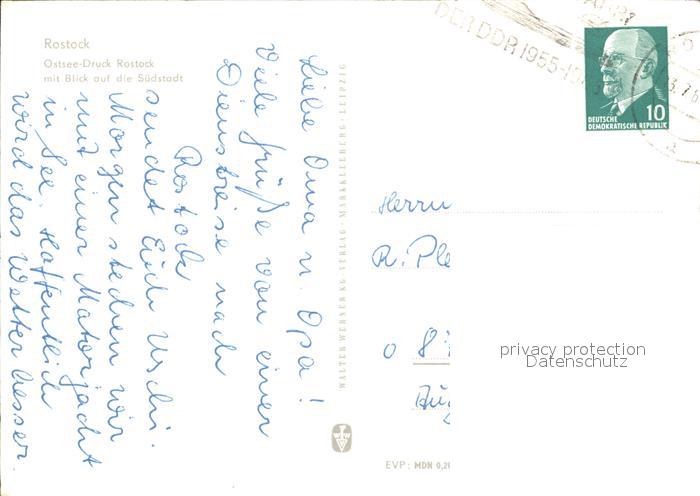 Rostock
Ostsee-Druck Rostock
mit Blick auf die Südstadt
Liebe Oma u. Opa!
Viele Grüße von einer
Dienstreise nach
Rostock
sendet Euch Uschi.
Morgen stechen wir
mit einer Motorjacht
in See. Hoffentlich
wird das Wetter besser.
WALTER WERNER KG · VERLAG · MARKKLEEBERG · LEIPZIG
DER DDR 1955-19
DEUTSCHE
DEMOKRATISCHE REPUBLIK
10
Herrn
R. Ple
privacy protection
Datenschutz
EVP: MDN 0,20